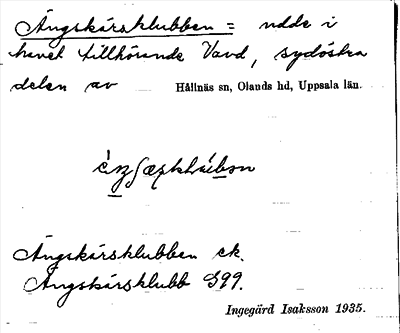 Ängskärsklubben = udde i
havet tillhörande Vavd, sydöstra
delen av Hållnäs sn, Olands hd, Uppsala län.
Ängskärsklubben ek.
Ängskärsklubb G99.
Ingegärd Isaksson 1935.